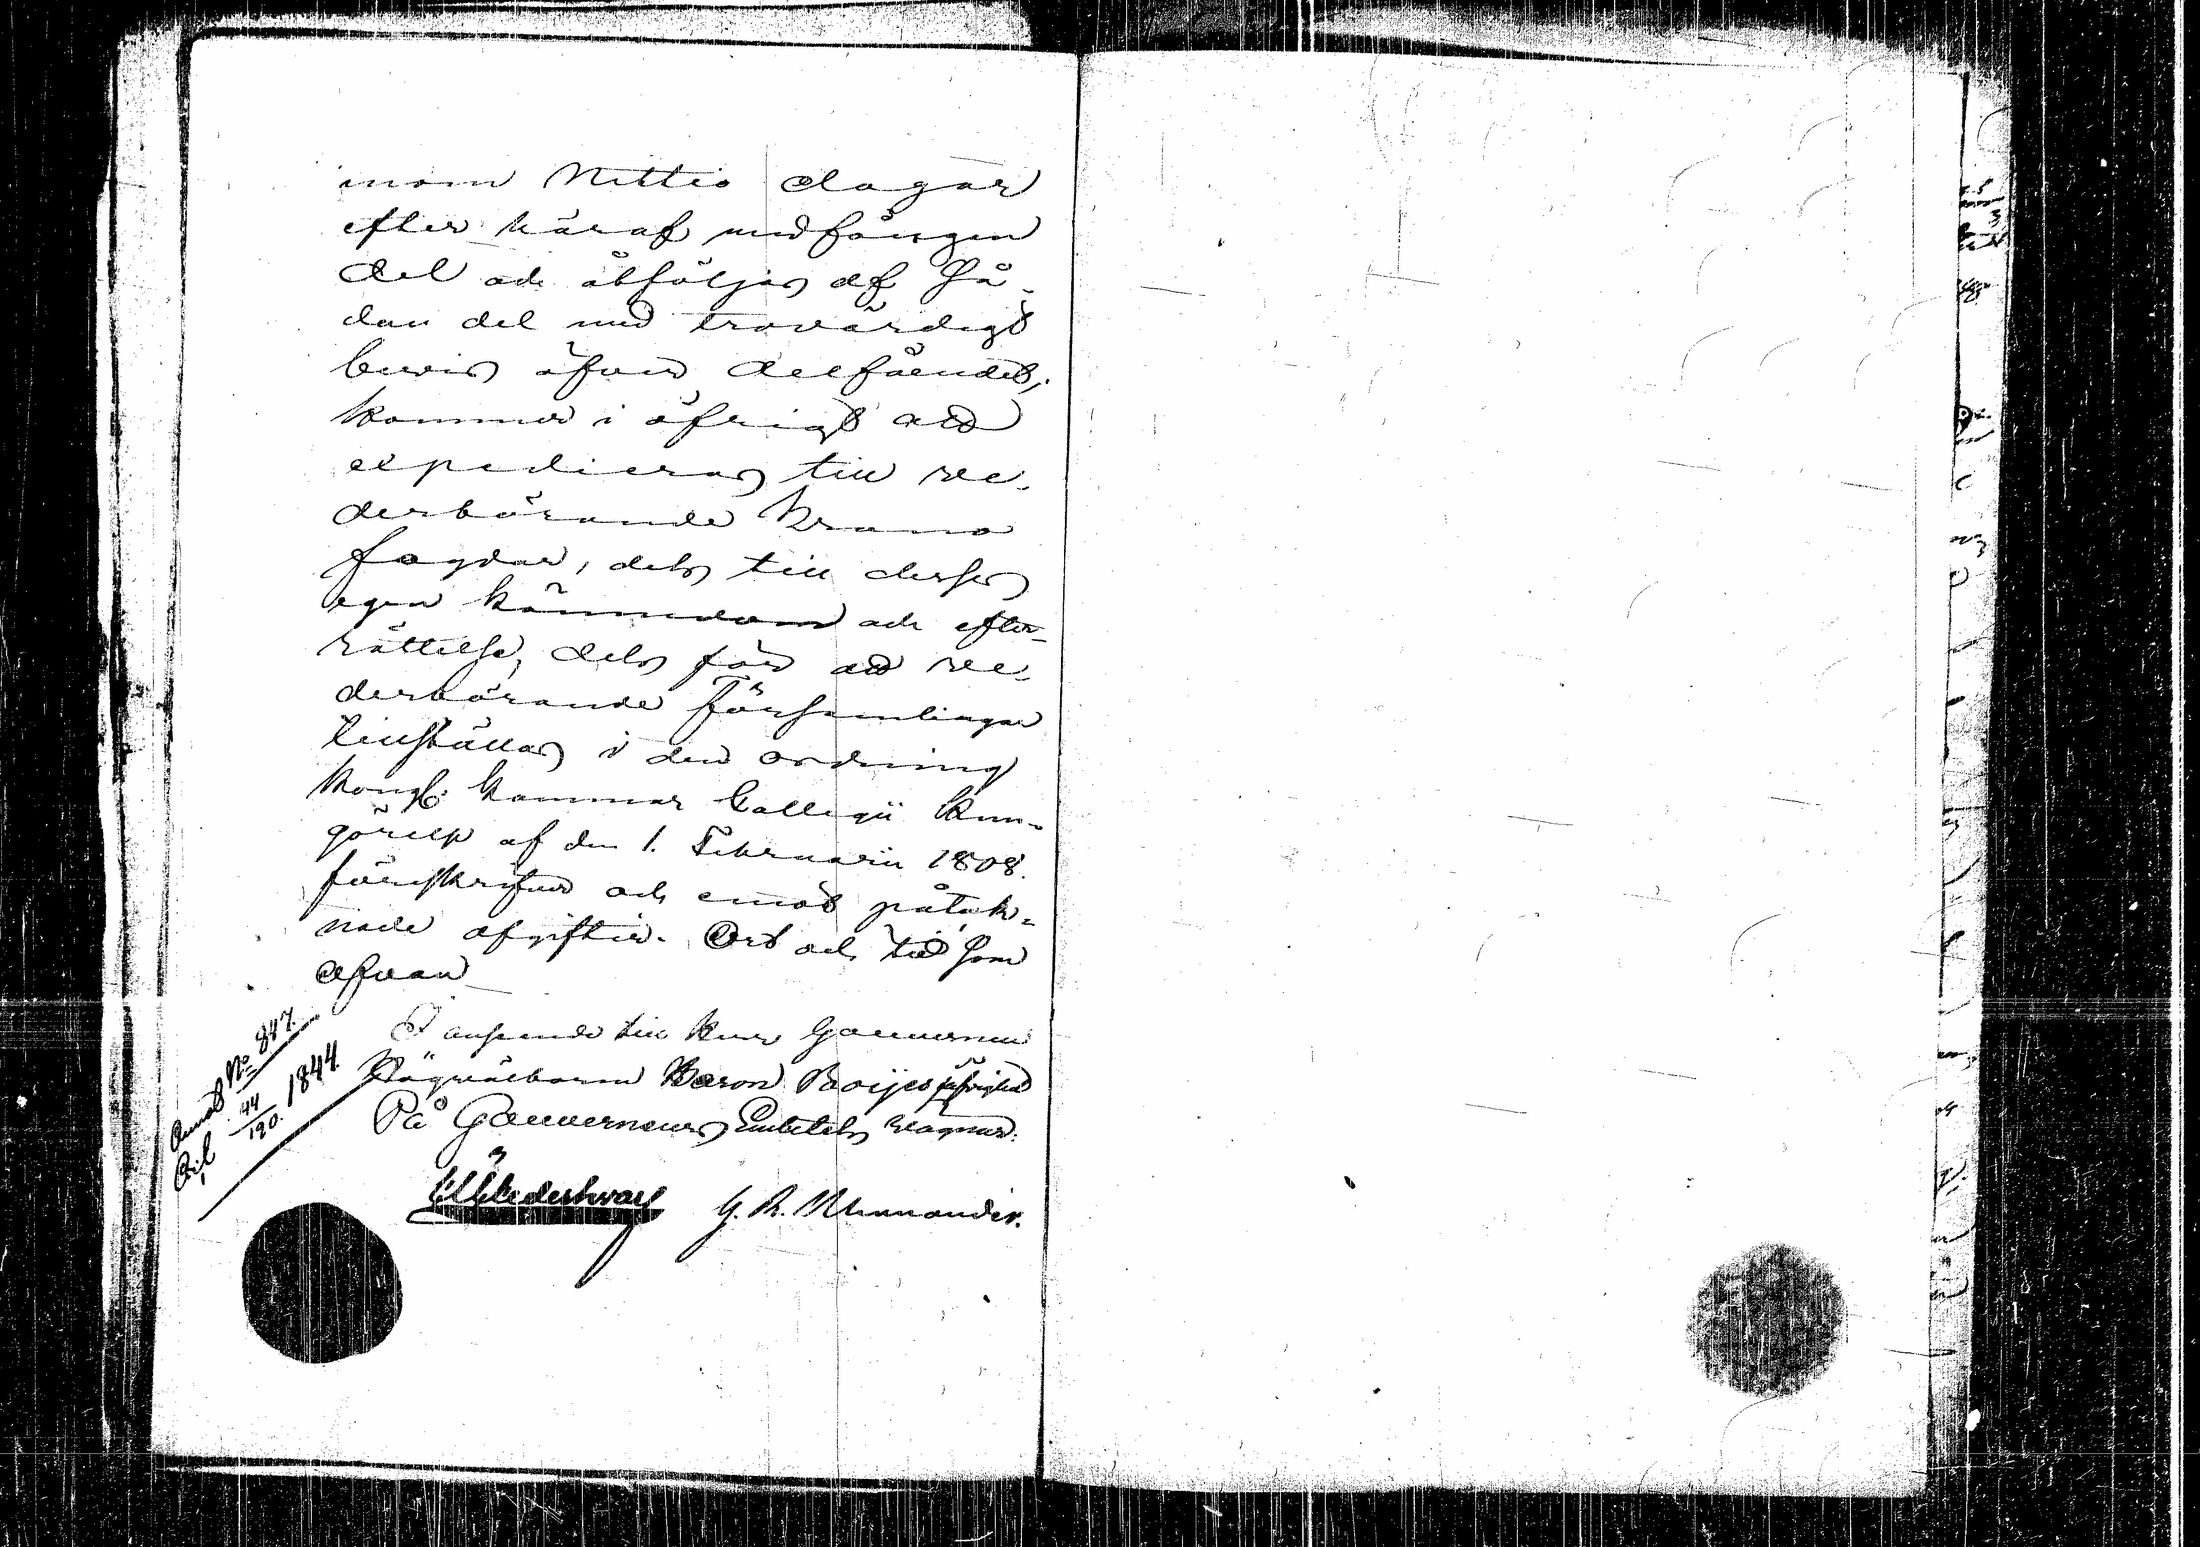 inom Nittio dagar
efter häraf undfången
del och åtföljas af så-
dan del med trovärdigt
bevis öfver delfåendet;
kommer i öfrigt att
expedieras till ve-
derbörande Krono
fogdar, dels till desses
egen kännedom och efter-
rättelse, dels för att ve-
derbörande Församlingar
tillställas i den ordning
Kongl. Kammar Collegii Kun-
görelse af den 1. Februarii 1808.
föreskrifver och emot påtek-
nade afgifter. Ort och tid som
ofvan
I anseende till Herr Gouverneuren
Högvälborne Baron Boijes
På Gouverneurs Embetets vägnar:
G. A.
No 847.
44
190. 1844.